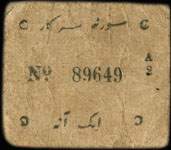 سورٹھ سرکار
A
No 89649
2
ایک آنہ